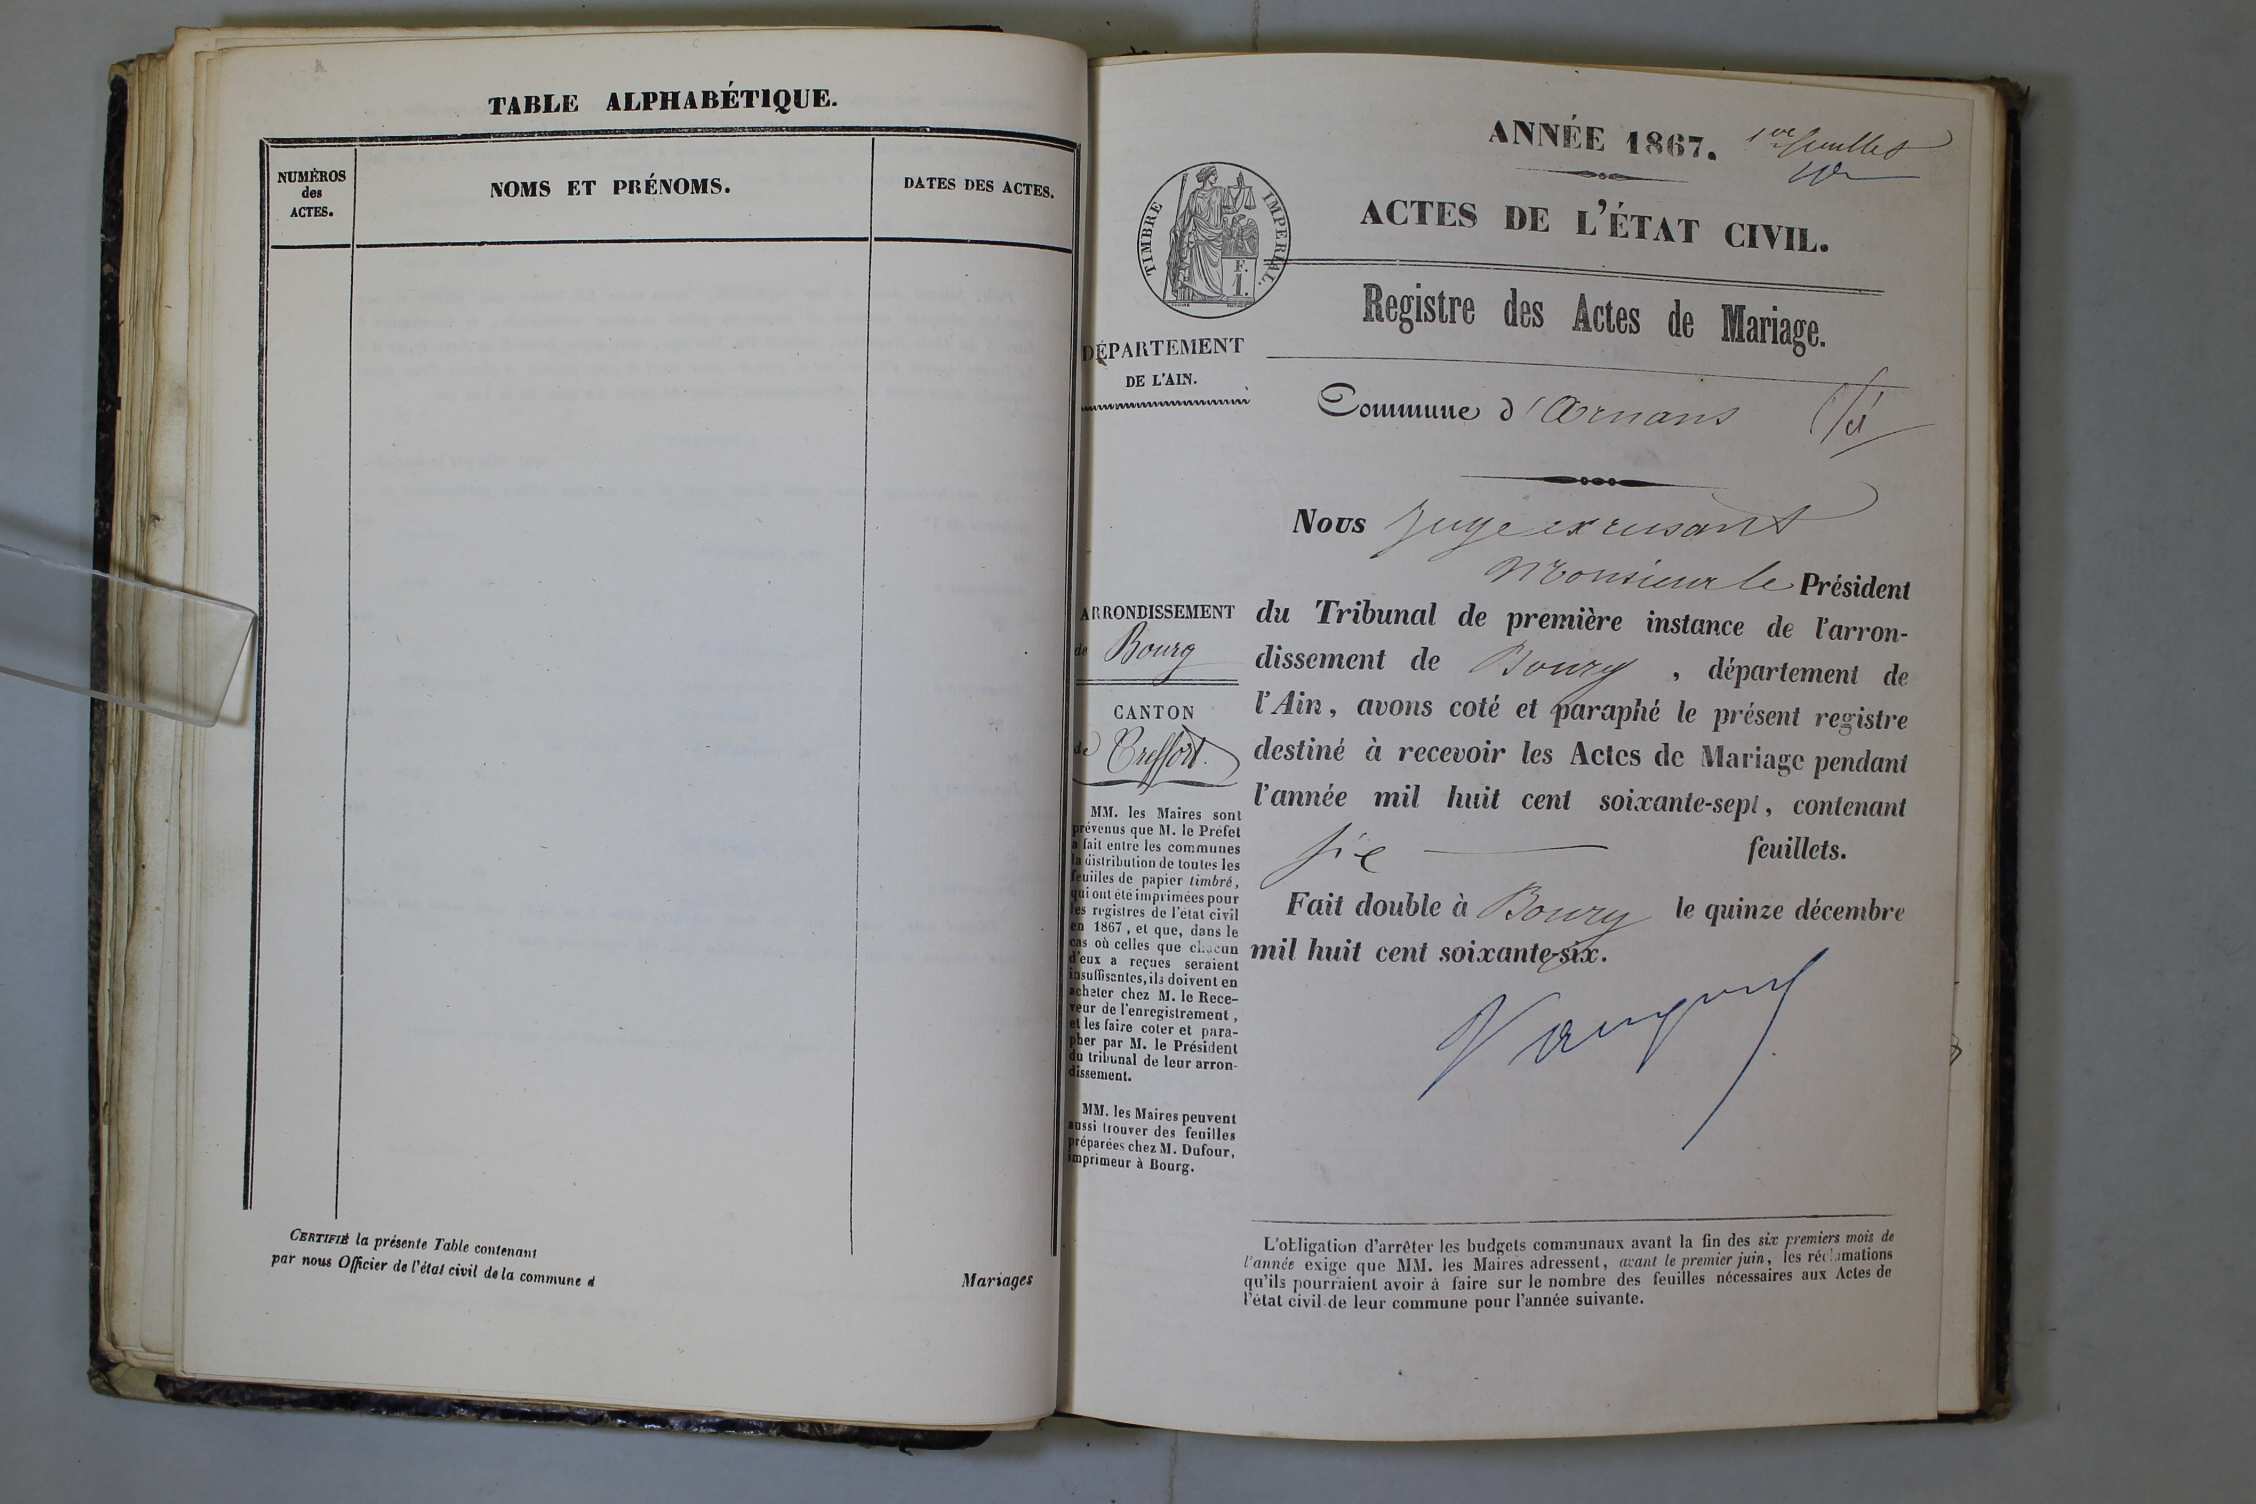 TABLE ALPHABÉTIQUE.
NUMÉROS
des
ACTES.
NOMS ET PRÉNOMS.
DATES DES ACTES.
CERTIFIÉ la présente Table contenant
par nous Officier de l'état civil de la commune d
Mariages
ANNÉE 1867.
1er feuillet
TIMBRE IMPERIAL.
F.
1.
ACTES DE L'ÉTAT CIVIL.
Registre des Actes de Mariage.
DÉPARTEMENT
DE L'AIN.
Commune d'Arnans
ARRONDISSEMENT
de Bourg
CANTON
de Treffort.
MM. les Maires sont
prévenus que M. le Préfet
a fait entre les communes
la distribution de toutes les
feuilles de papier timbré,
qui ont été imprimées pour
les registres de l'état civil
en 1867, et que, dans le
cas où celles que chacun
d'eux a reçues seraient
insuffisantes, ils doivent en
acheter chez M. le Rece-
veur de l'enregistrement,
et les faire coter et para-
pher par M. le Président
du tribunal de leur arron-
dissement.
MM. les Maires peuvent
aussi trouver des feuilles
préparées chez M. Dufour,
imprimeur à Bourg.
Nous Juge excusant
Monsieur le Président
du Tribunal de première instance de l'arron-
dissement de Bourg, département de
l'Ain, avons coté et paraphé le présent registre
destiné à recevoir les Actes de Mariage pendant
l'année mil huit cent soixante-sept, contenant
six feuillets.
Fait double à Bourg le quinze décembre
mil huit cent soixante-six.
L'obligation d'arrêter les budgets communaux avant la fin des six premiers mois de
l'année exige que MM. les Maires adressent, avant le premier juin, les réclamations
qu'ils pourraient avoir à faire sur le nombre des feuilles nécessaires aux Actes de
l'état civil de leur commune pour l'année suivante.